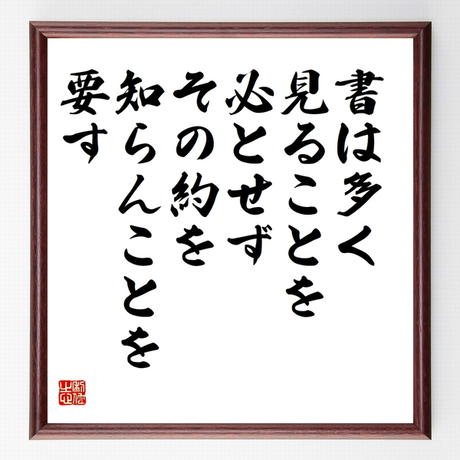 書は多く
見ることを
必とせず
その約を
知らんことを
要す